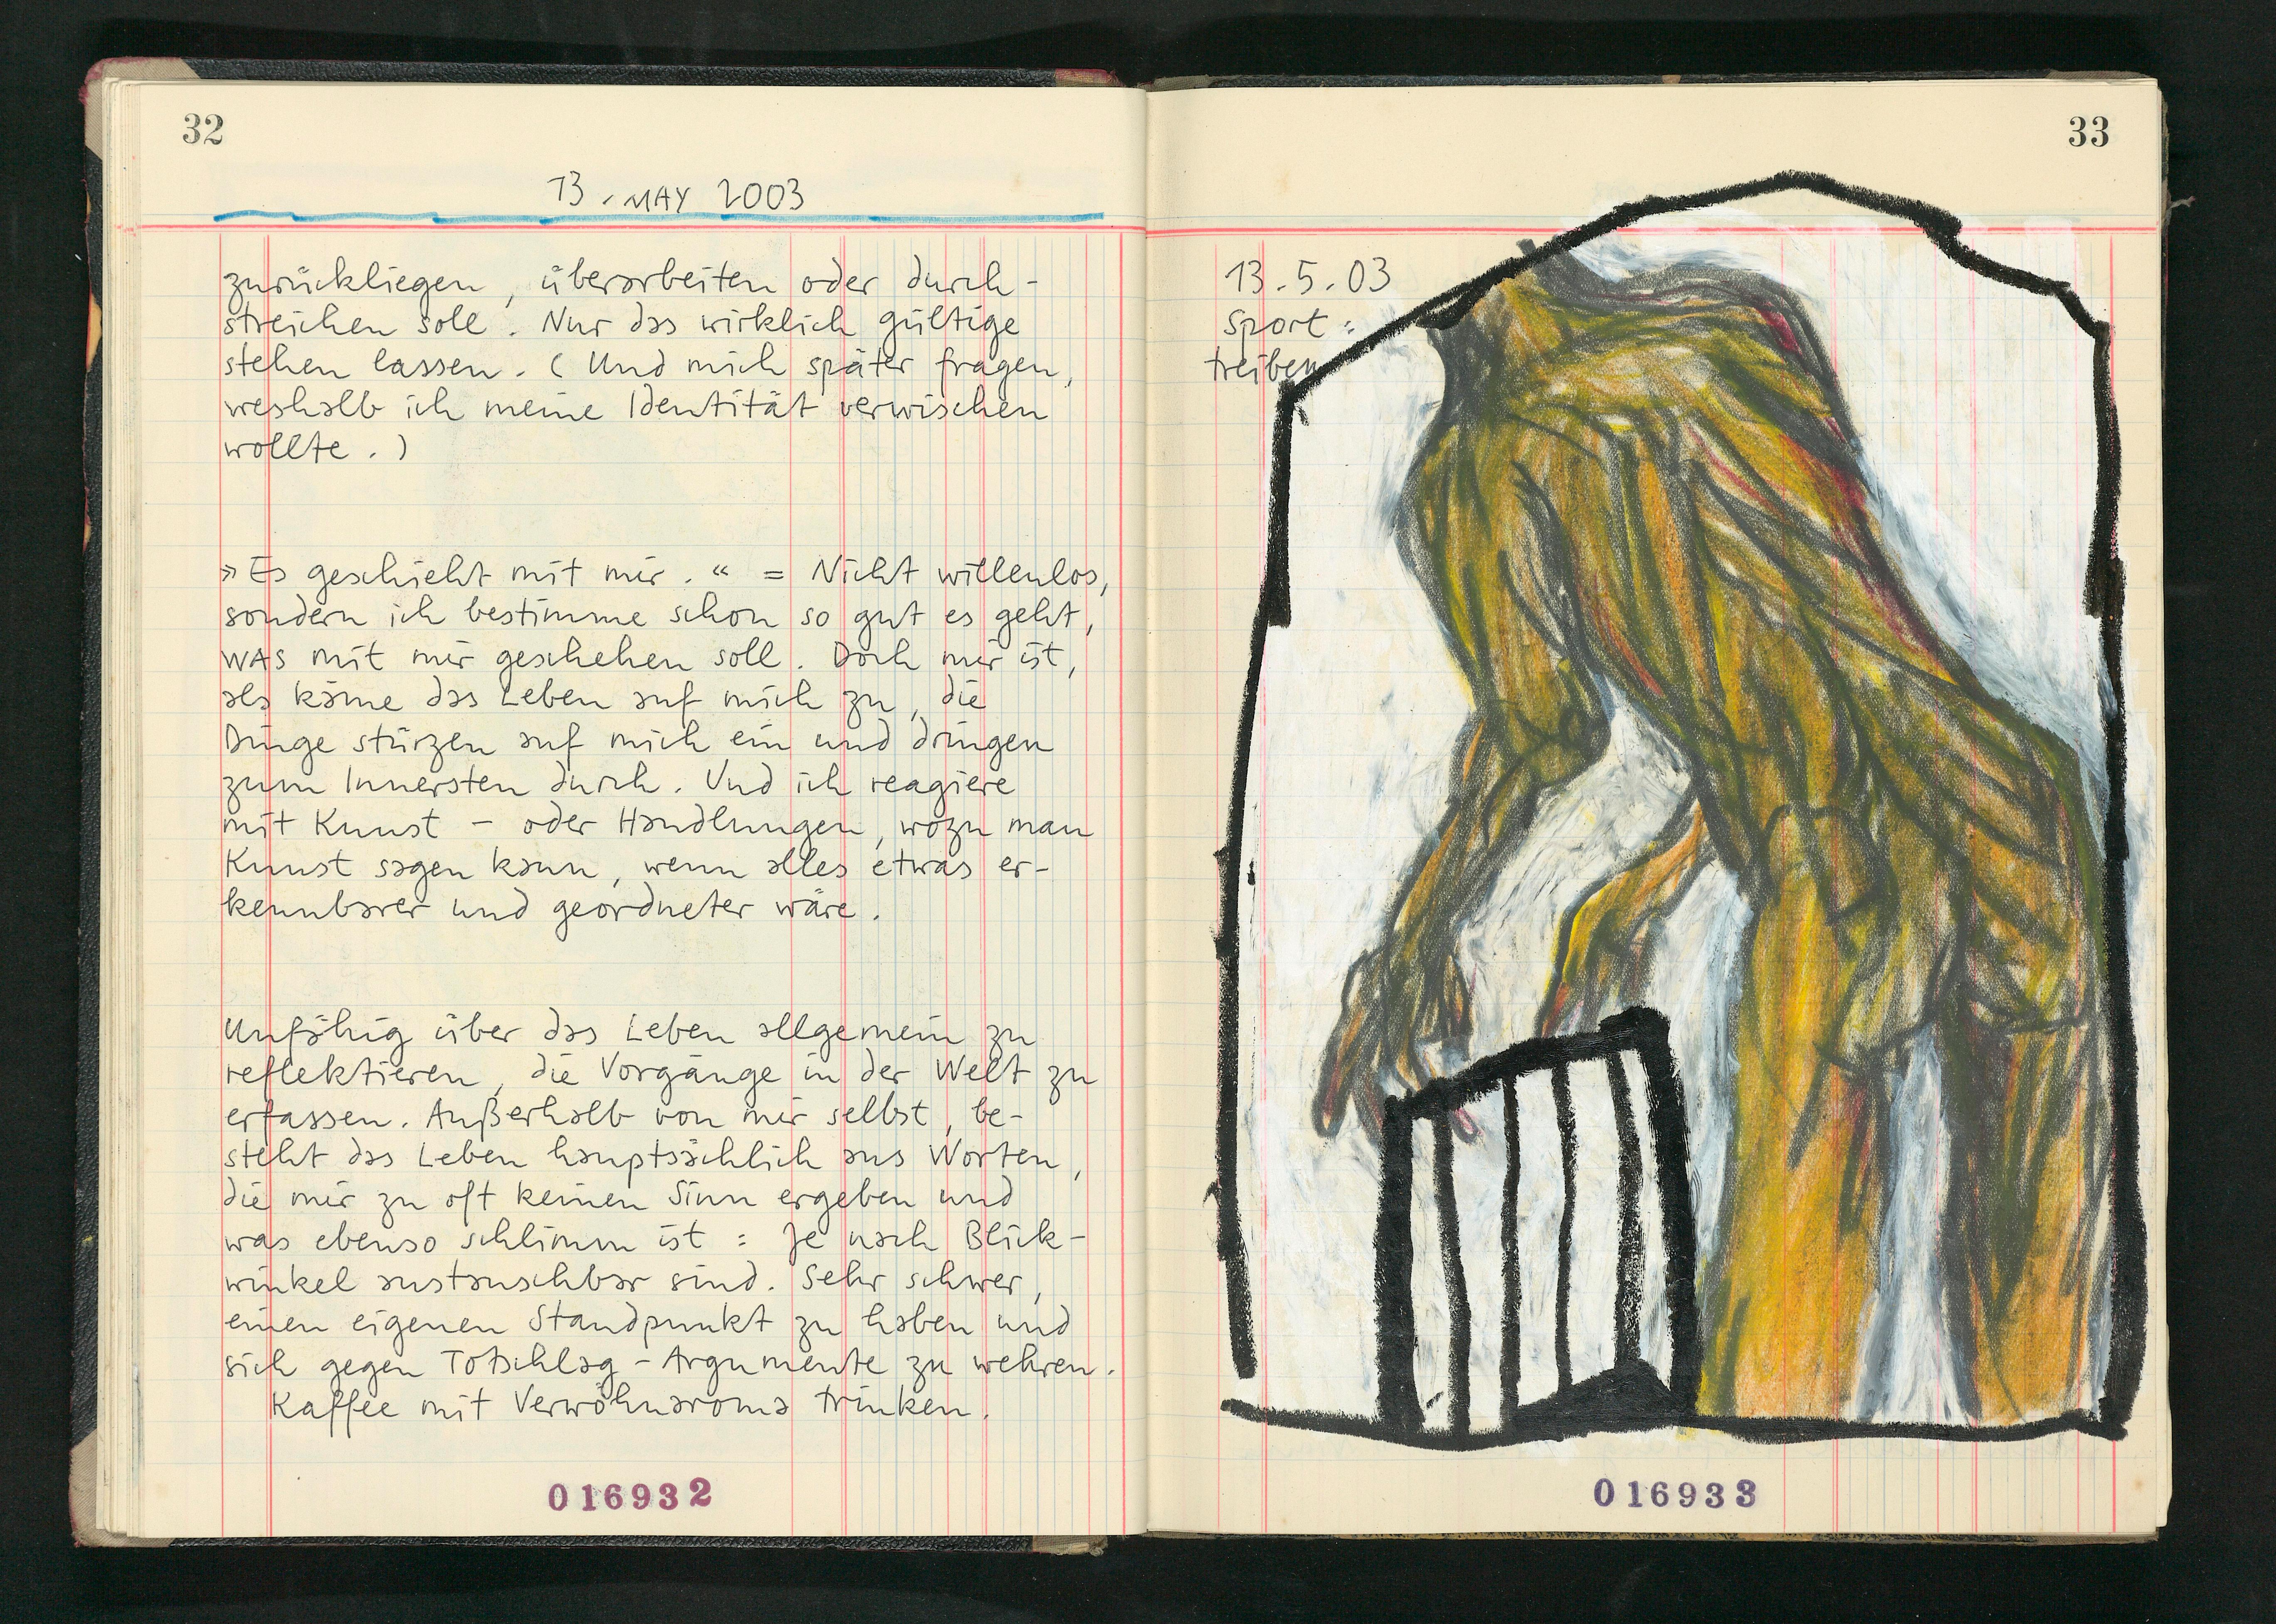 32
13. MAY 2003
zurückliegen, überarbeiten oder durch-
streichen soll. Nur das wirklich gültige
stehen lassen. (Und mich später fragen,
weshalb ich meine Identität verwischen
wollte.)
»Es geschieht mit mir.“ = Nicht willenlos,
sondern ich bestimme schon so gut es geht,
WAS mit mir geschehen soll. Doch mir ist,
als käme das Leben auf mich zu, die
Dinge stürzen auf mich ein und dringen
zum Innersten durch. Und ich reagiere
mit Kunst – oder Handlungen, wozu man
Kunst sagen kann, wenn alles etwas er-
kennbarer und geordneter wäre.
Unfähig über das Leben allgemein zu
reflektieren, die Vorgänge in der Welt zu
erfassen. Außerhalb von mir selbst, be-
steht das Leben hauptsächlich aus Worten,
die mir zu oft keinen Sinn ergeben und
was ebenso schlimm ist: Je nach Blick-
winkel austauschbar sind. Sehr schwer,
einen eigenen Standpunkt zu haben und
sich gegen Totschlag-Argumente zu wehren.
Kaffee mit Verwöhnaroma trinken.
016932
33
13.5.03
Sport=
treiben
016933